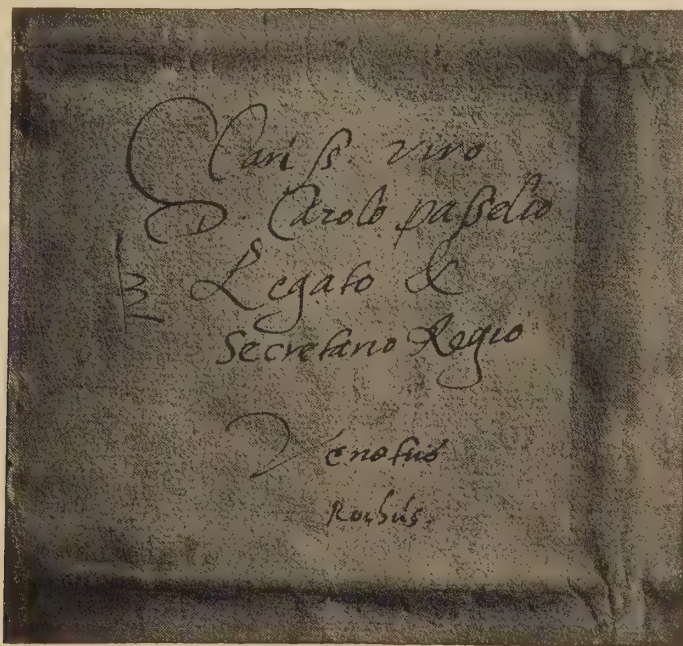 Clariss viro
D. Carolo passelio
Legato &
Secretario Regio
Venetiis